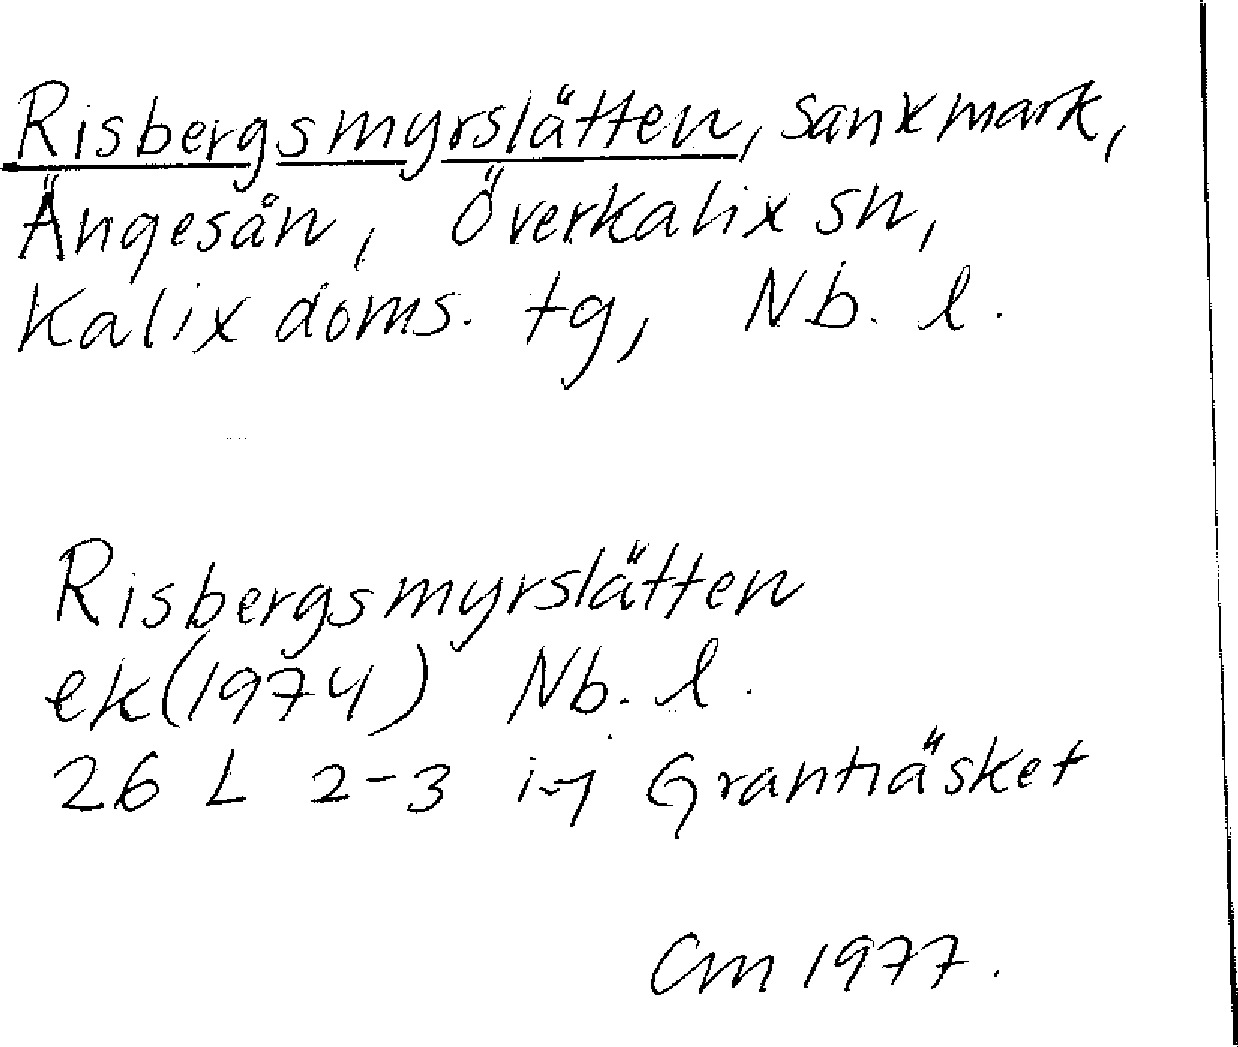 Risbergsmyrslätten, sankmark,
Ängesån, Överkalix sn,
Kalix doms. tg, Nb. l.
Risbergsmyrslätten
ek(1974) Nb. l.
26 L 2-3 i-j Granträsket
Cm 1977.